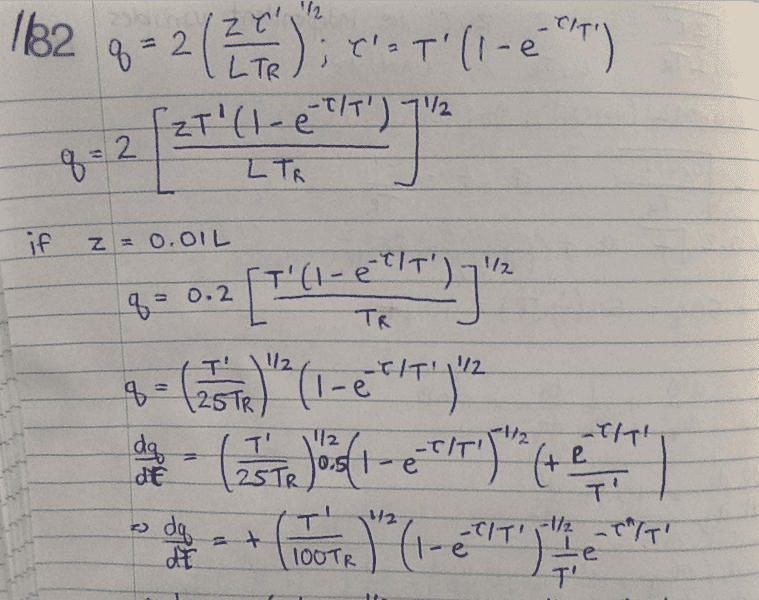 1/82 q = 2 (zτ'/LT_R)^1/2 ; τ' = T' (1 - e^-τ/T')
q = 2 [zT'(1 - e^-τ/T')/LT_R]^1/2
if z = 0.01L
q = 0.2 [T'(1 - e^-τ/T')/T_R]^1/2
q = (T'/25T_R)^1/2 (1 - e^-τ/T')^1/2
dq/dτ = (T'/25T_R)^1/2 0.5 (1 - e^-τ/T')^-1/2 (+ e^-τ/T'/T')
⇒ dq/dτ = + (T'/100T_R)^1/2 (1 - e^-τ/T')^-1/2 1/T' e^-τ/T'